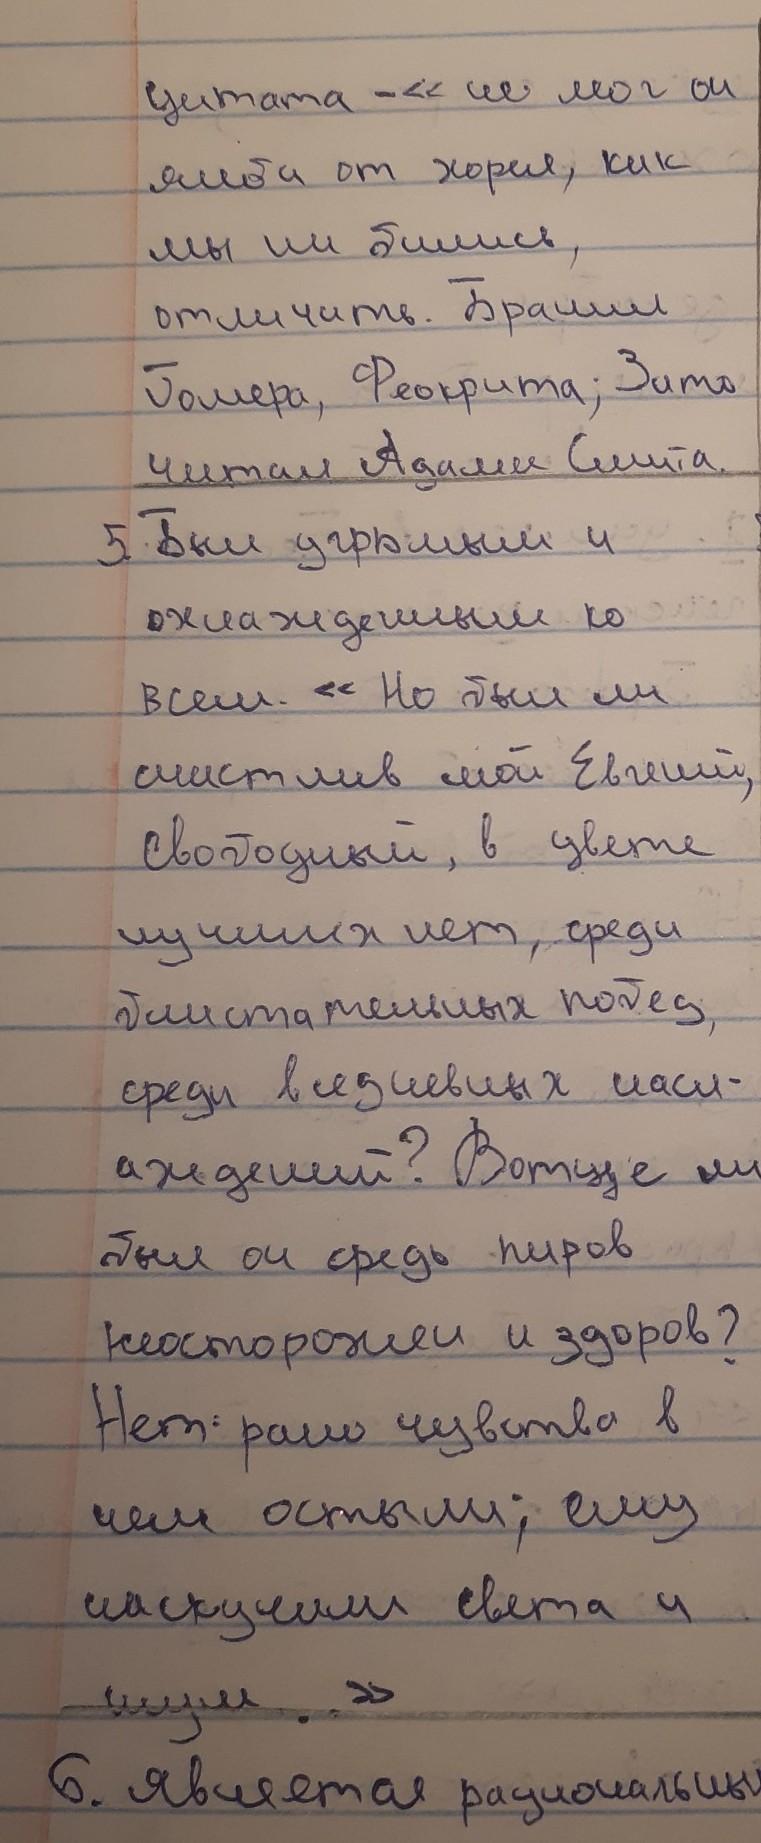 цитата - « не мог он
ямба от хорея, как
мы ни бились,
отличить. Бранил
Гомера, Феокрита; Зато
читал Адама Смита.
5. Был угрюмым и
охлажденным ко
всем. « Но был ли
счастлив мой Евгений,
Свободный, в цвете
лучших лет, среди
блистательных побед,
среди вседневных насл-
аждений? Вотще ли
был он средь пиров
неосторожен и здоров?
Нет: рано чувства в
нем остыли; ему
наскучили света и
шум...»
6. Является рациональны